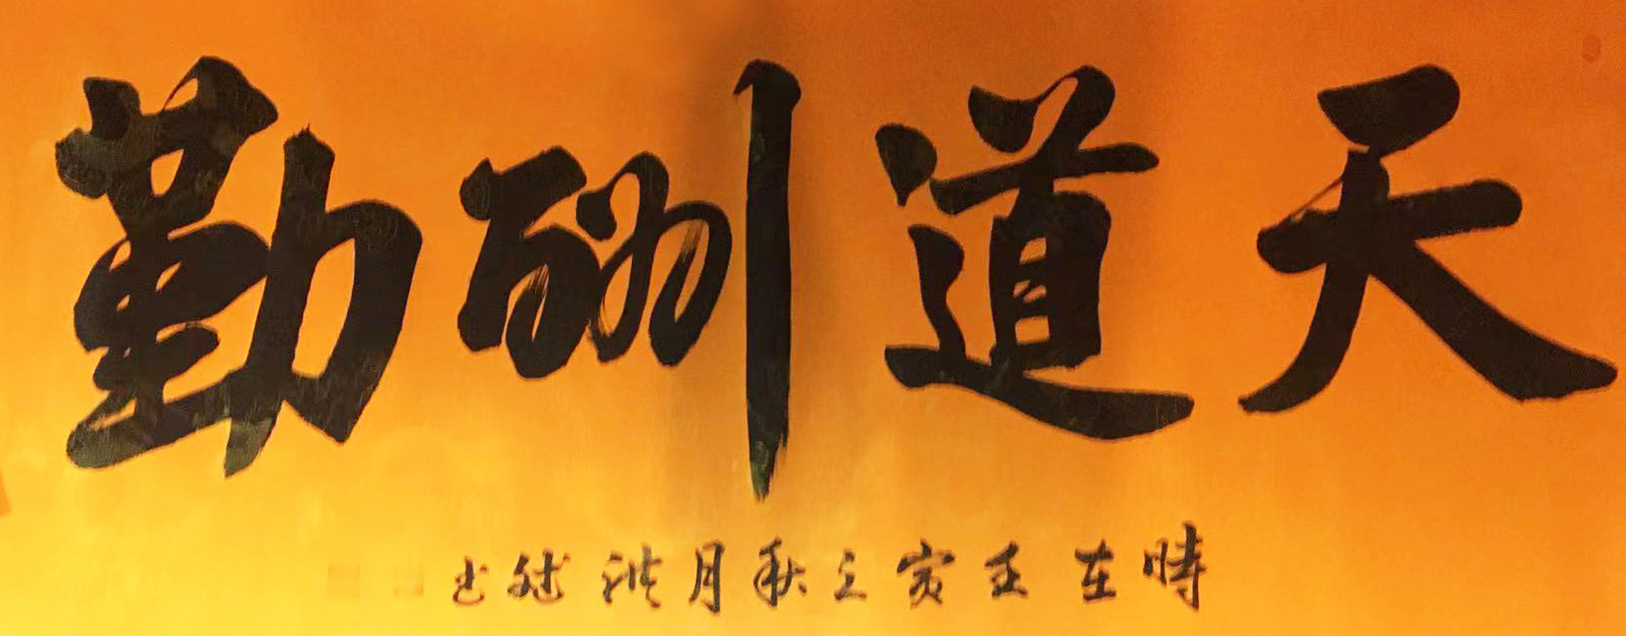 天道酬勤
時在壬寅之秋月洪斌书